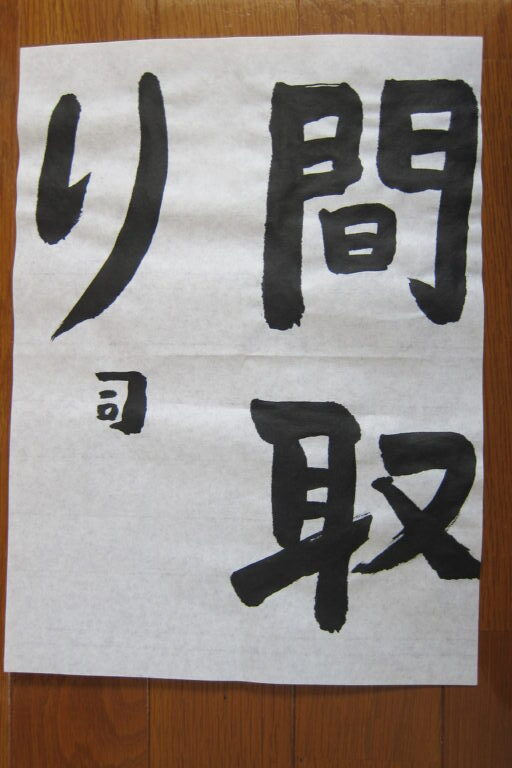 間取
り
司